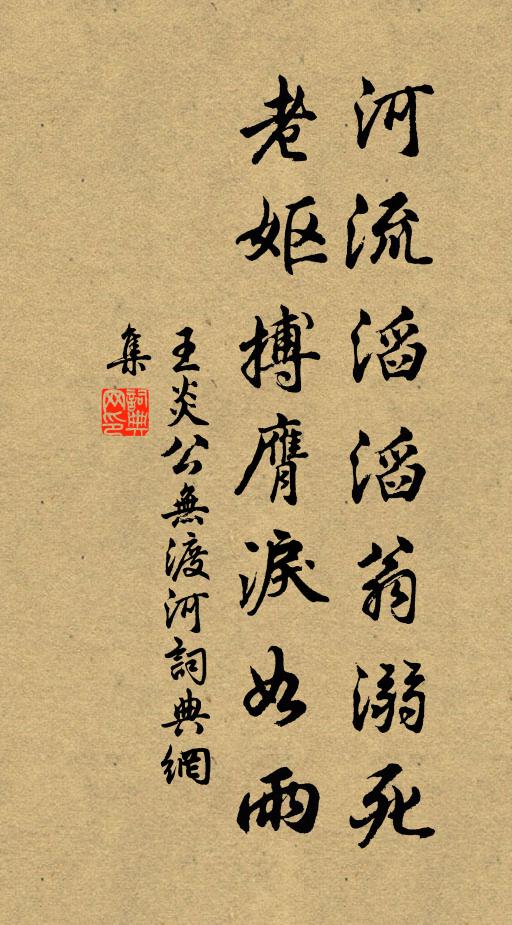 河流滔滔翁溺死
老嫗搏膺淚如雨
王炎公無渡河詞典網
集
詞典網印